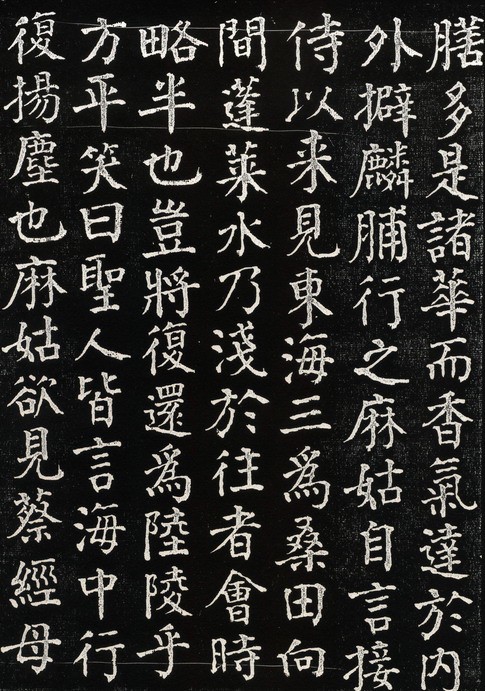 膳多是諸華而香氣達於内
外擗麟脯行之麻姑自言接
侍以来見東海三為桑田向
間蓬莱水乃淺於往者會時
略半也豈將復還為陸陵乎
方平笑曰聖人皆言海中行
復揚塵也麻姑欲見蔡經母